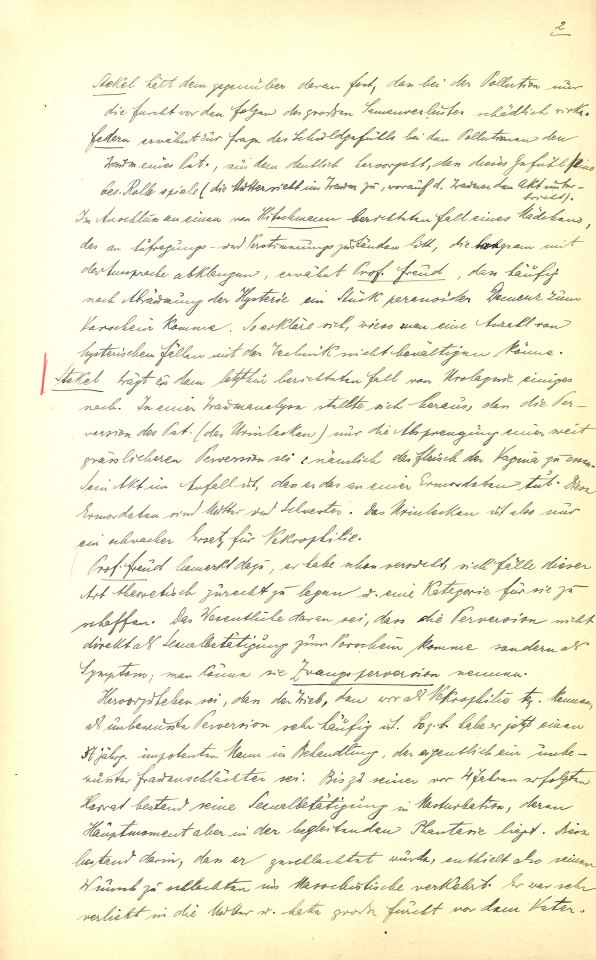 2
Stekel hält dem gegenüber daran fest, dass bei der Pollution nur
die Furcht vor den Folgen des großen Samenverlustes schädlich wirke.
Federn erwähnt zur Frage des Schuldgefühls bei den Pollutionen den
Traum eines Pat., aus dem deutlich hervorgeht, dass dieses Gefühl eine
bes. Rolle spiele (die Mutter sieht im Traum zu, worauf d. Träumer den Akt unter-
bricht).
Im Anschluss an einen von Hitschmann berichteten Fall eines Mädchens,
das an Aufregungs- und Verstimmungszuständen litt, die langsam mit
der Aussprache abklangen, erwähnt Prof. Freud, dass häufig
nach Abräumung der Hysterie ein Stück paranoider Demenz zum
Vorschein komme. So erkläre sich, wieso man eine Anzahl von
hysterischen Fällen mit der Technik nicht bewältigen könne.
Stekel trägt zu dem letzthin berichteten Fall von Urolagnie einiges
nach. In einer Traumanalyse stellte sich heraus, dass die Per-
version des Pat. (das Urinlecken) nur die Absprengung einer weit
grässlicheren Perversion sei: nämlich das Fleisch der Vagina zu essen.
Sein Akt im Anfall ist, dass er das an einer Ermordeten tut. Diese
Ermordeten sind Mutter und Schwester. Das Urinlecken ist also nur
ein schwacher Ersatz für Nekrophilie.
Prof. Freud bemerkt dazu, er habe schon versucht, sich Fälle dieser
Art theoretisch zurecht zu legen u. eine Kategorie für sie zu
schaffen. Das Wesentliche daran sei, dass die Perversion nicht
direkt als Sexualbetätigung zum Vorschein komme sondern als
Symptom; man könne sie Zwangsperversion nennen.
Hervorzuheben sei, dass der Trieb, den wir als Nekrophilie kennen,
als unbewusste Perversion sehr häufig ist. So z.b. habe er jetzt einen
37 jähr. impotenten Mann in Behandlung, der eigentlich ein unbe-
wusster Frauenschlächter sei. Bis zu seiner vor 4 Jahren erfolgten
Heirat bestand seine Sexualbetätigung in Masturbation, deren
Hauptmoment aber in der begleitenden Phantasie liegt. Diese
bestand darin, dass er geschlachtet würde, enthielt also seinen
Wunsch zu schlachten ins Masochistische verkehrt. Er war sehr
verliebt in die Mutter u. hatte große Furcht vor dem Vater.